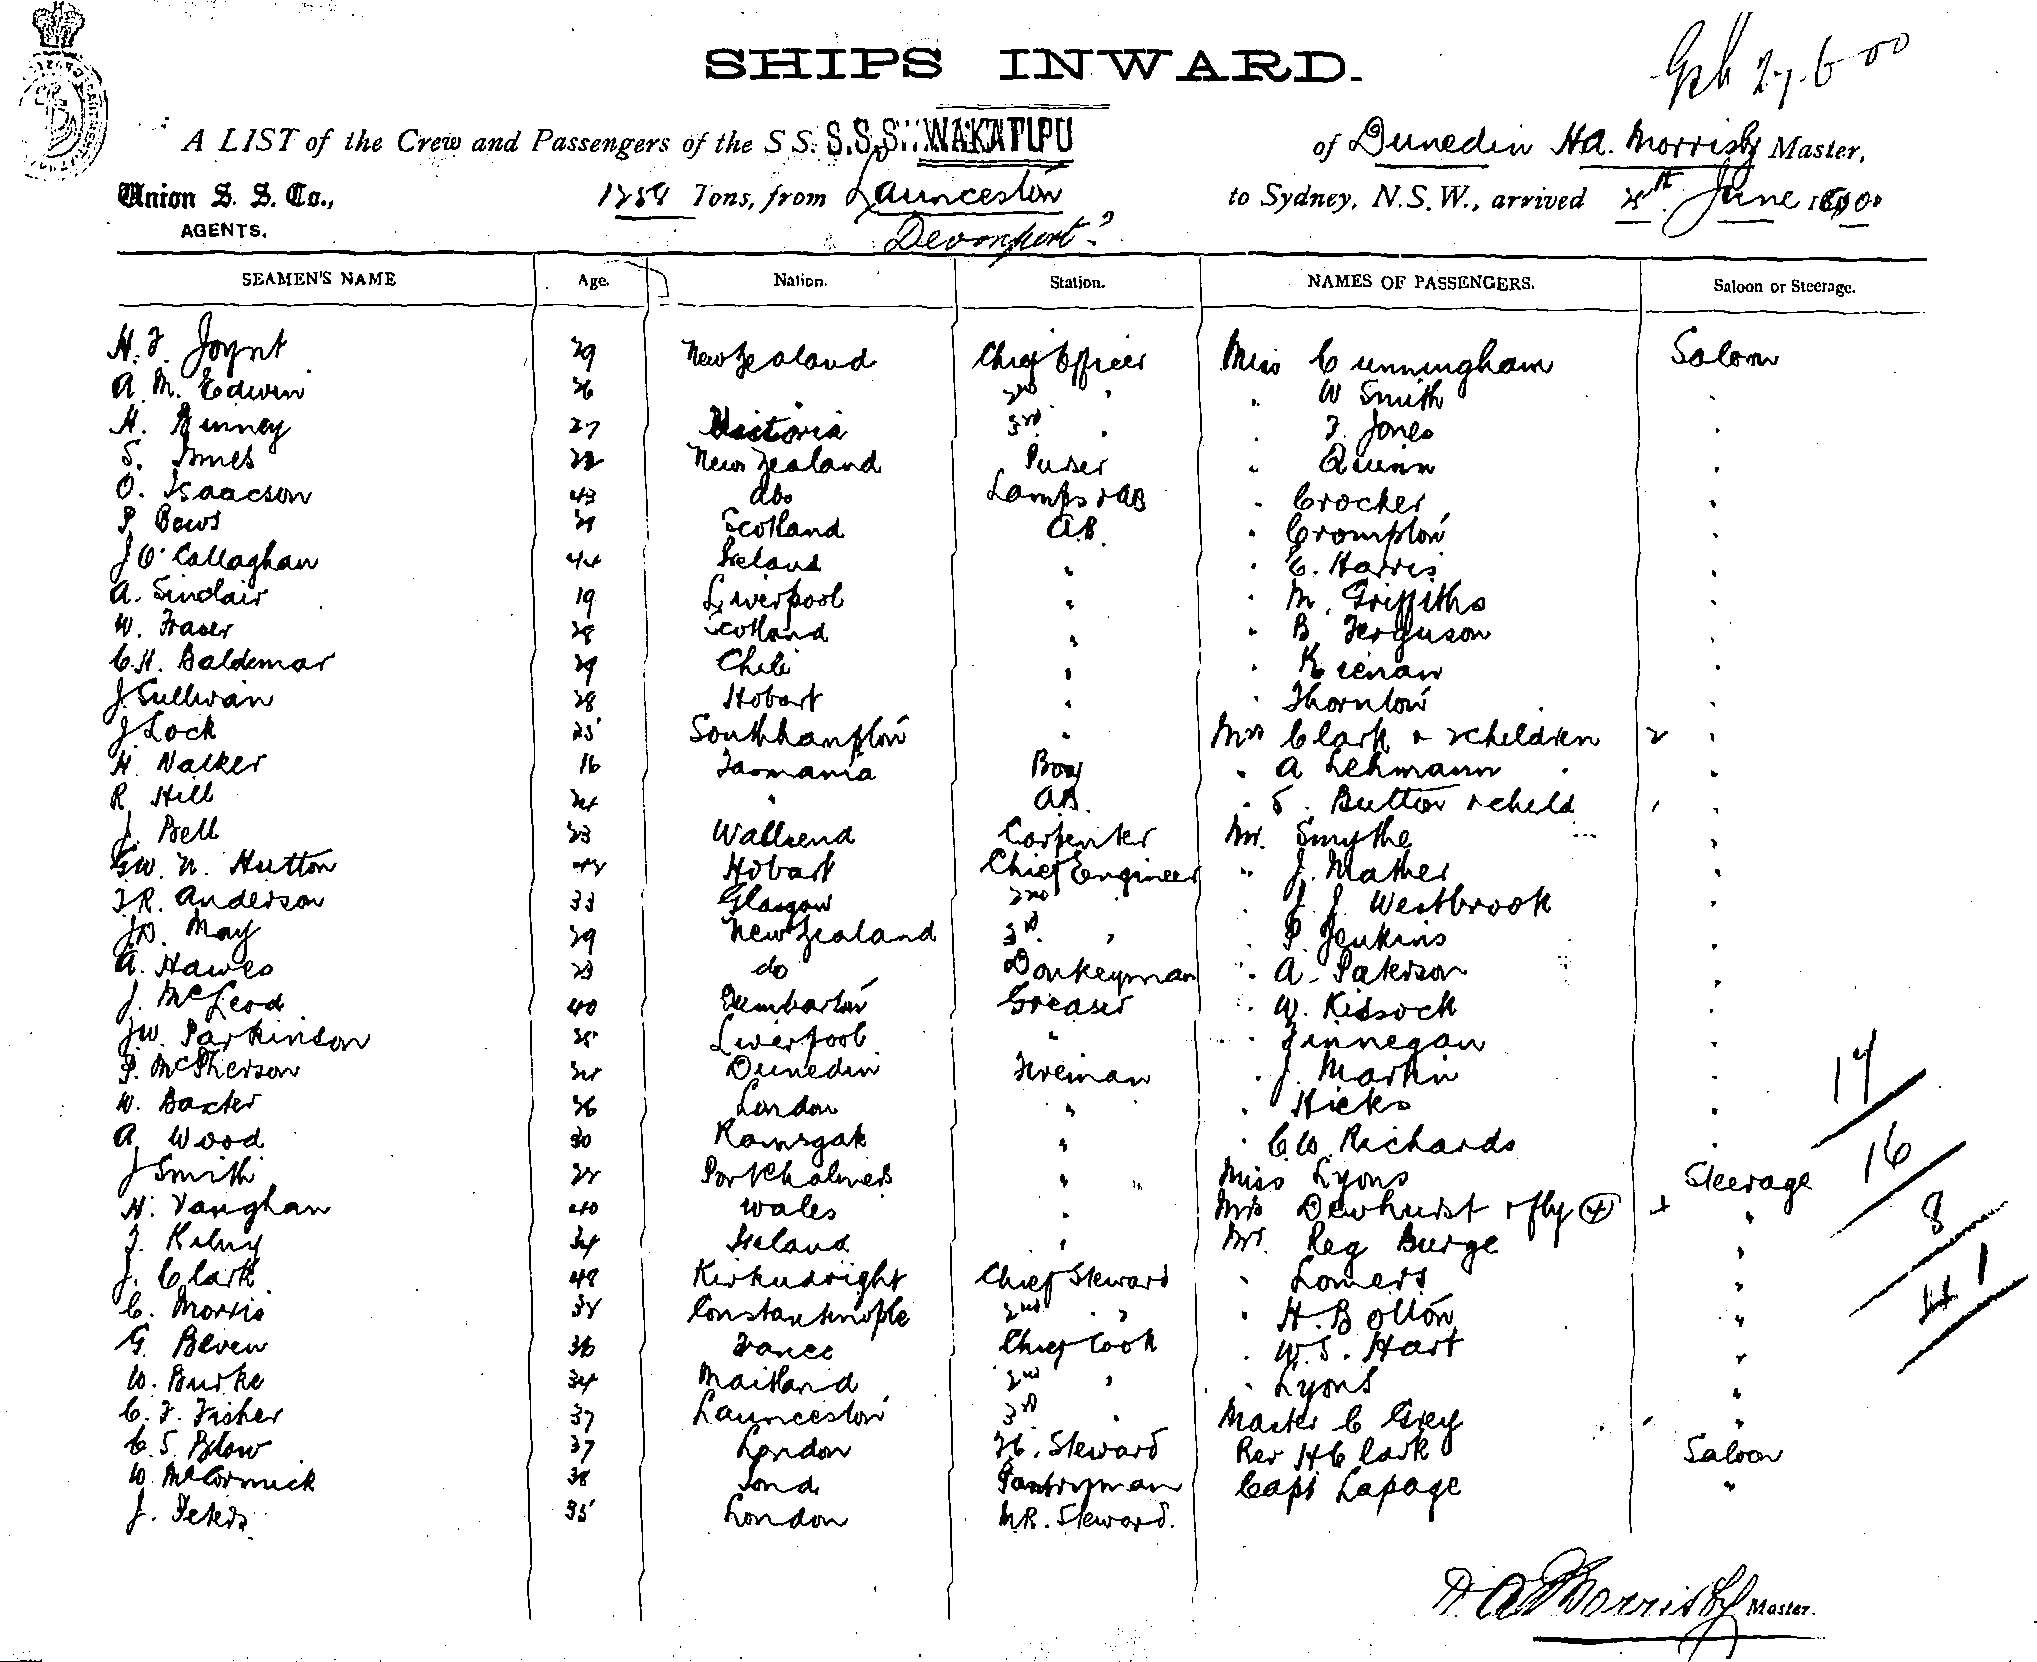 SHIPS INWARD.
27.6.00
A LIST of the Crew and Passengers of the S S. S.S. WAKATIPU of Dunedin H.A. Morrisby Master,
Union S. S. Co., 1258 Tons, from Launceston to Sydney, N.S.W., arrived June 1900
AGENTS. Devonport
SEAMEN'S NAME Age. Nation. Station. NAMES OF PASSENGERS. Saloon or Steerage.
H. F. Joynt 29 New Zealand Chief Officer Miss Cunningham Saloon
A. M. Edwin 26 " 2nd " " W Smith "
H. Binney 27 Victoria 3rd " " F. Jones "
S. Innes New Zealand Purser " Quinn "
O. Isaacson 43 do Lamps & AB " Crocker "
P Bews Scotland AB. " Crompton "
J O'Callaghan 44 Ireland " " E. Harris "
A. Sinclair 19 Liverpool " " M. Griffiths "
W. Fraser 28 Scotland " " B Ferguson "
C.H. Baldemar 29 Chili " " Kienan "
J. Sullivan 28 Hobart " " Thornton "
J Lock 25 Southhampton " Mrs Clark & 2 children 2 "
H. Walker 16 Tasmania Boy " A Lehmann "
R Hill 24 " AB. " S. Button & child "
J. Bell 23 Wallsend Carpenter Mr. Smythe "
GW. N. Hutton Hobart Chief Engineer " J. Mather "
T.R. Anderson 33 Glasgow 2nd " " J J Westbrook "
J.B. May 29 New Zealand 3rd " " P. Jenkins "
A. Hawes 23 do Donkeyman " A. Paterson "
J. McLeod 40 Dumbarton Greaser " W. Kissock "
J.W. Parkinson Liverpool " " Finnegan "
P. McPherson Dunedin Fireman " J. Martin "
W. Baxter 26 London " " Hicks "
A. Wood 30 Ramsgate " " C W. Richards "
J Smith Port Chalmers " Miss Lyons Steerage
H. Vaughan 40 Wales " Mrs Dewhurst & fly 4 "
F. Kilny 34 Ireland " Mr. Reg Burge "
J. Clark 48 Kirkudright Chief Steward " Lomers "
C. Morris Constantinople 2nd " " H. Bolton "
G. Beven 36 France Chief Cook " W. S. Hart "
W. Burke 34 Maitland 2nd " " Lyons "
C. F. Fisher 37 Launceston 3rd " Master C Grey "
C. S. Blow 37 London Steward Rev H Clark Saloon
W. McCormick 38 Lond Pantryman Capt Lapage "
J. Peters 35 London MR. Steward.
17
16
8
41
H A Morrisby Master.